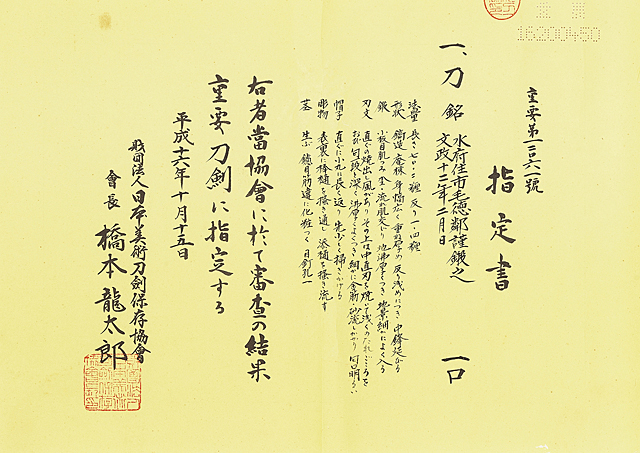 16200450
重要第一二三六八一號
指定書
一、刀 銘 水府住市毛徳鄰謹鍛之
文政十二年二月日
一口
法量 長さ七〇・二糎 反り一・四糎
形状 鎬造 庵棟 身幅広く 重ね厚め 反り浅めにつき 中鋒延びる
鍛 小板目肌つみ 流れ肌交り 地沸厚くつき 地景細かによく入る
刃文 直ぐの焼出し風があり その上は中直刃を焼いて浅くのたれごころを
おび 匂頗る深く 沸厚くよくつき 細かに金筋・砂流しかかり 匂口明るい
帽子 直ぐに小丸に長く返り 先少しく掃きかける
彫物 表裏に棒樋を掻き通し 添樋を掻き流す
茎 生ぶ 鑢目筋違に化粧つく 目釘孔一
右者當協會に於て審査の結果
重要刀劍に指定する
平成十六年十月十五日
財団法人日本美術刀劍保存協會
會長 橋本龍太郎